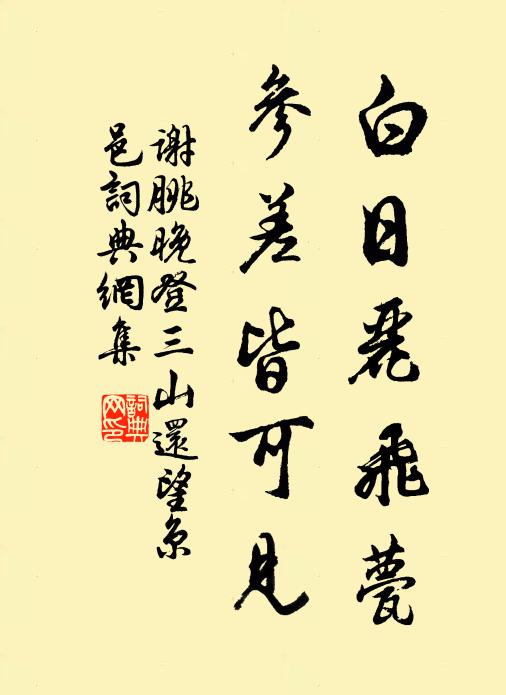 白日麗飛甍
參差皆可見
谢朓晚登三山還望京
邑詞典網集
詞典网印